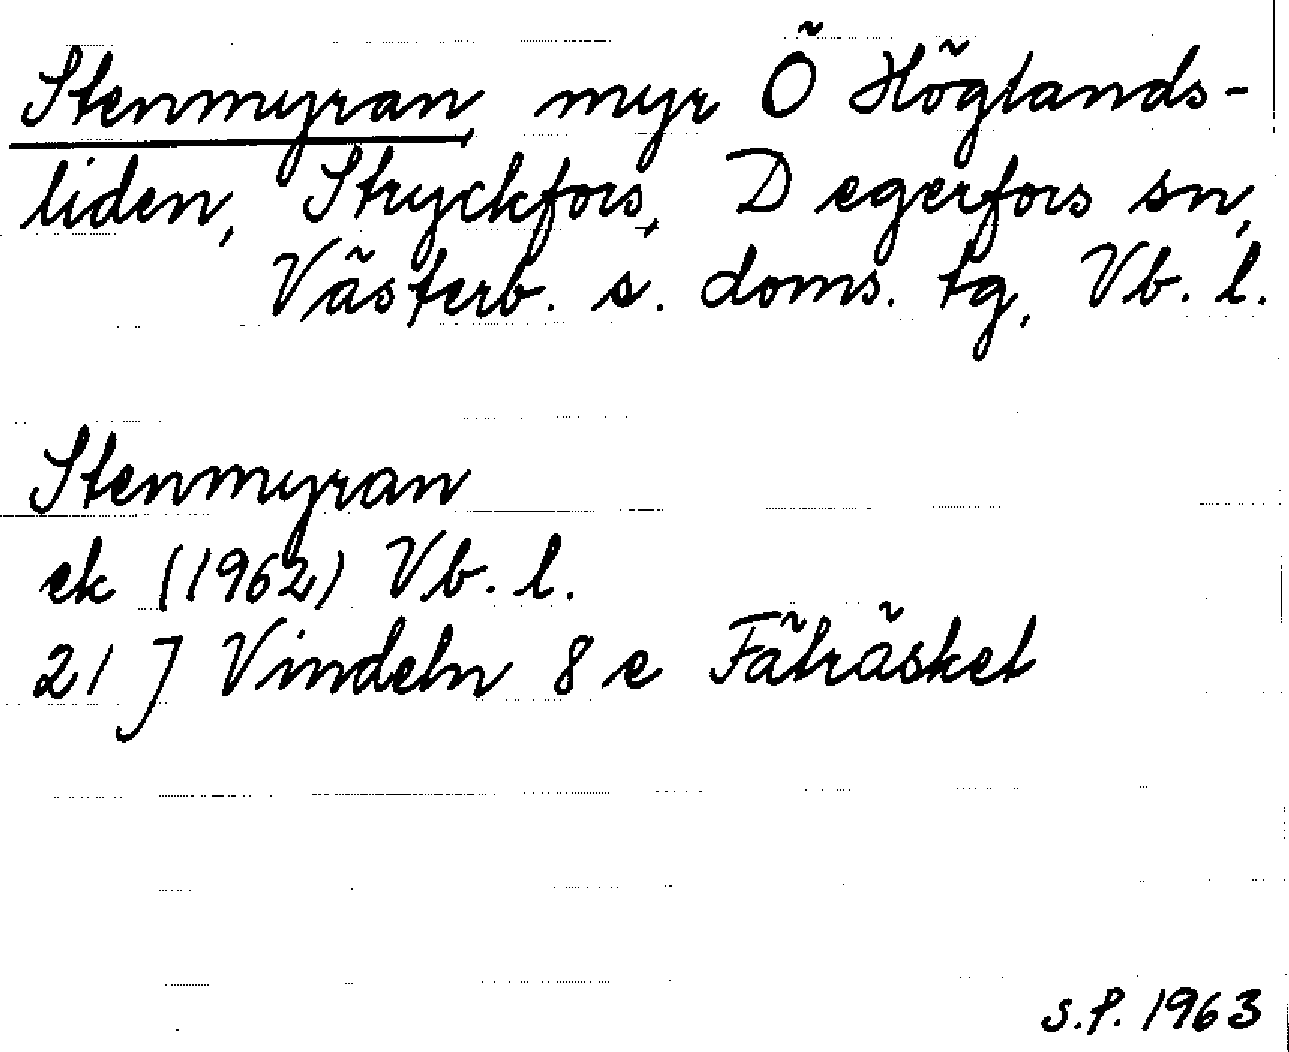 Stenmyran, myr Ö Höglands-
liden, Stryckfors, Degerfors sn,
Västerb. s. doms. tg, Vb. l.
Stenmyran
ek (1962) Vb. l.
21 J Vindeln 8 e Fäträsket
S.P. 1963